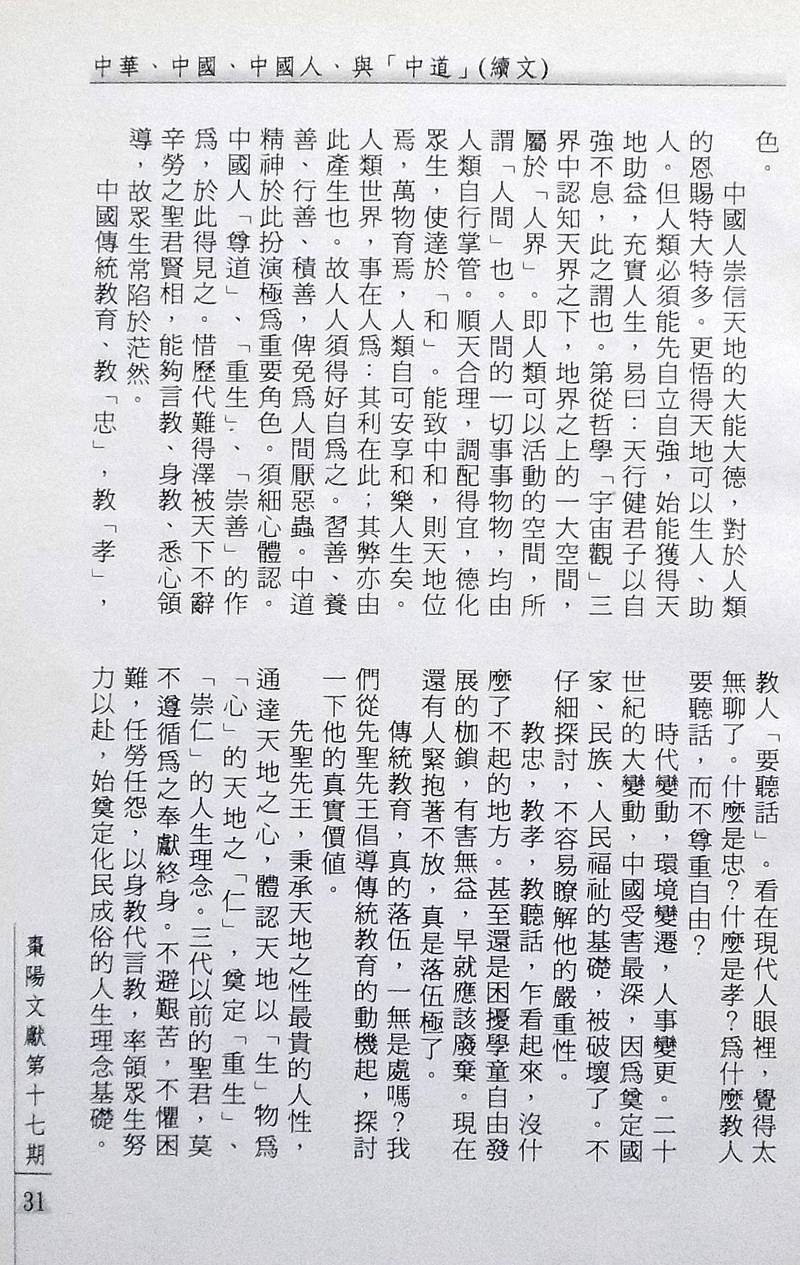 中華、中國、中國人、與「中道」(續文)
色。
中國人崇信天地的大能大德，對於人類
的恩賜特大特多。更悟得天地可以生人、助
人。但人類必須能先自立自強，始能獲得天
地助益，充實人生，易曰：天行健君子以自
強不息，此之謂也。第從哲學「宇宙觀」三
界中認知天界之下，地界之上的一大空間，
屬於「人界」。即人類可以活動的空間，所
謂「人間」也。人間的一切事事物物，均由
人類自行掌管。順天合理，調配得宜，德化
眾生，使達於「和」。能致中和，則天地位
焉，萬物育焉，人類自可安享和樂人生矣。
人類世界，事在人為：其利在此；其弊亦由
此產生也。故人人須得好自為之。習善、養
善、行善、積善，俾免為人間厭惡蟲。中道
精神於此扮演極為重要角色。須細心體認。
中國人「尊道」、「重生」、「崇善」的作
為，於此得見之。惜歷代難得澤被天下不辭
辛勞之聖君賢相，能夠言教、身教、悉心領
導，故眾生常陷於茫然。
中國傳統教育、教「忠」，教「孝」，
教人「要聽話」。看在現代人眼裡，覺得太
無聊了。什麼是忠？什麼是孝？為什麼教人
要聽話，而不尊重自由？
時代變動，環境變遷，人事變更。二十
世紀的大變動，中國受害最深，因為奠定國
家、民族、人民福祉的基礎，被破壞了。不
仔細探討，不容易瞭解他的嚴重性。
教忠，教孝，教聽話，乍看起來，沒什
麼了不起的地方。甚至還是困擾學童自由發
展的枷鎖，有害無益，早就應該廢棄。現在
還有人緊抱著不放，真是落伍極了。
傳統教育，真的落伍，一無是處嗎？我
們從先聖先王倡導傳統教育的動機起，探討
一下他的真實價值。
先聖先王，秉承天地之性最貴的人性，
通達天地之心，體認天地以「生」物為
「心」的天地之「仁」，奠定「重生」、
「崇仁」的人生理念。三代以前的聖君，莫
不遵循為之奉獻終身。不避艱苦，不懼困
難，任勞任怨，以身教代言教，率領眾生努
力以赴，始奠定化民成俗的人生理念基礎。
棗陽文獻第十七期
31